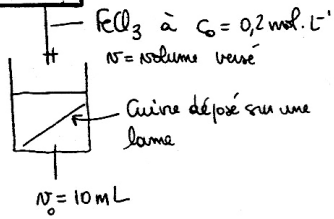 FeCl₃ à c₀ = 0,2 mol. L⁻¹
v = volume versé
Cuivre déposé sur une
lame
v₀ = 10 mL